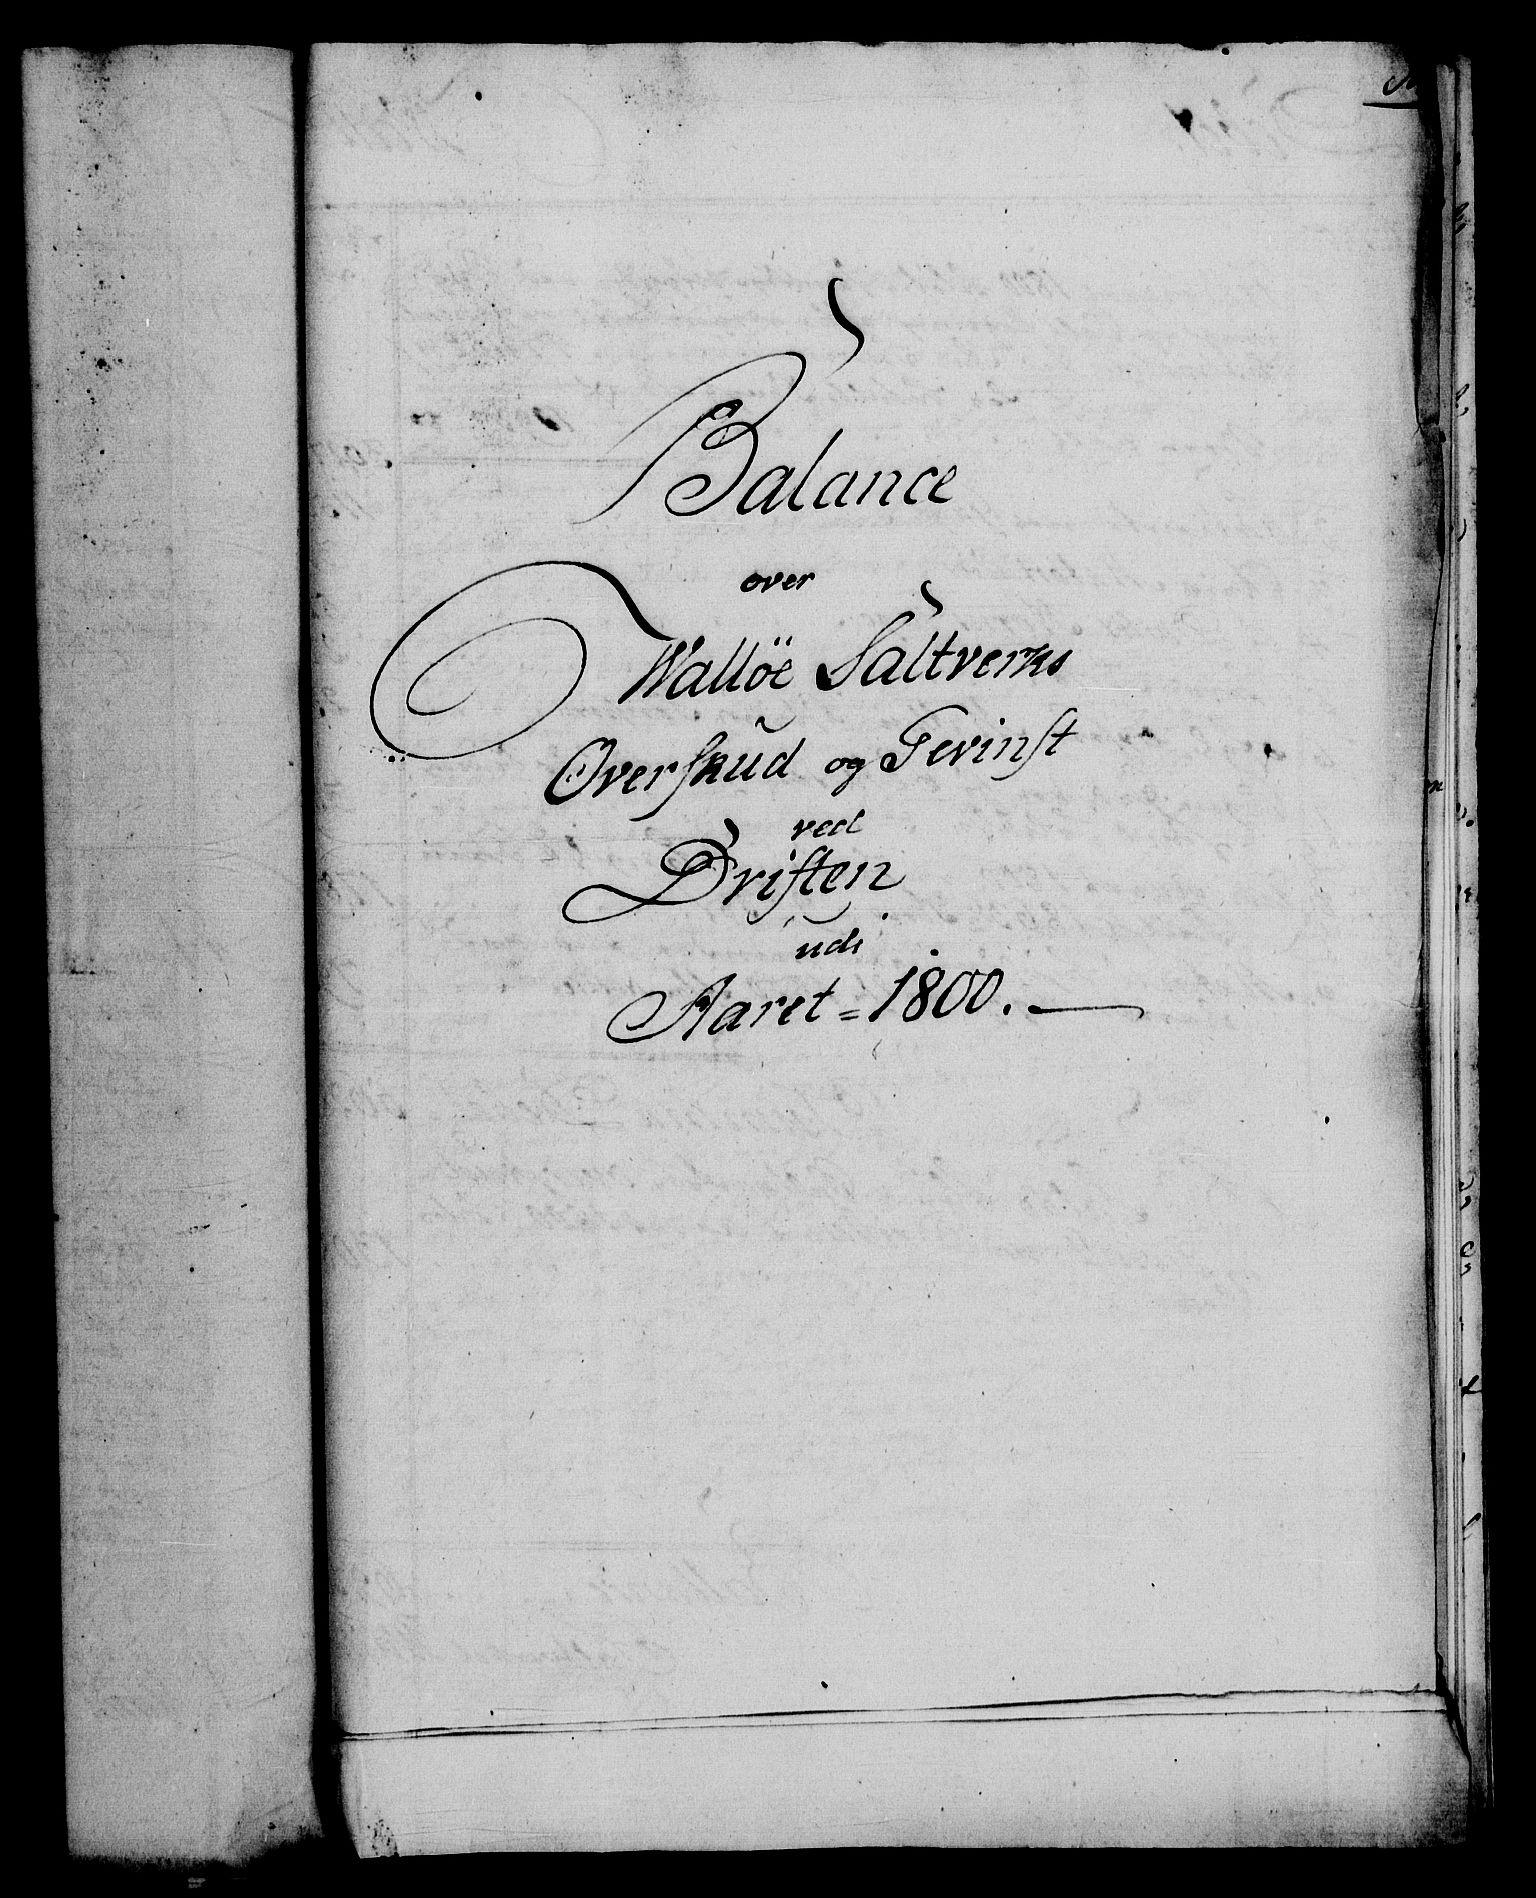 Balance
over
Walløe Saltverks
Overskud og Gevinst
ved
Driften
udi
Aaret = 1800. —